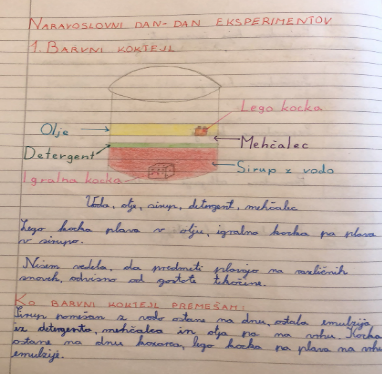 NARAVOSLOVNI DAN - DAN EKSPERIMENTOV
1. BARVNI KOKTEJL
Lego kocka
Olje
Mehčalec
Detergent
Sirup z vodo
Igralna kocka
Voda, olje, sirup, detergent, mehčalec
Lego kocka plava v olju, igralna kocka pa plava
v sirupu.
Nisem vedela, da predmeti plavajo na različnih
snoveh, odvisno od gostote tekočine.
KO BARVNI KOKTEJL PREMEŠAM:
Sirup pomešan z vodo ostane na dnu, ostala emulzija
iz detergenta, mehčalca in olja pa na vrhu. Kocka
ostane na dnu kozarca, lego kocka pa plava na vrhu
emulzije.